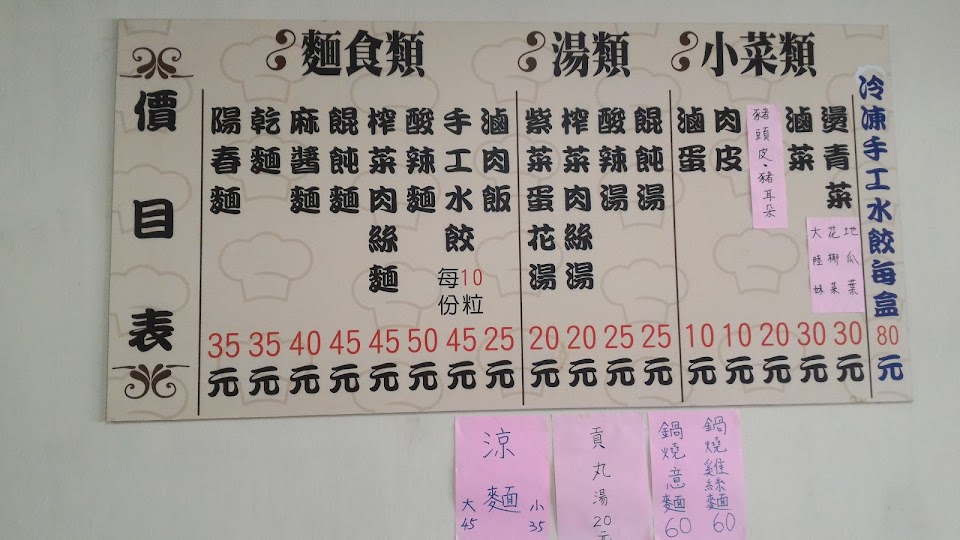 價目表
麵食類
陽春麵 35元
乾麵 35元
麻醬麵 40元
餛飩麵 45元
榨菜肉絲麵 45元
酸辣麵 50元
手工水餃 每份10粒 45元
滷肉飯 25元
湯類
紫菜蛋花湯 20元
榨菜肉絲湯 20元
酸辣湯 25元
餛飩湯 25元
小菜類
滷蛋 10元
肉皮 10元
豬頭皮、豬耳朵 20元
滷菜 30元
燙青菜 30元
地瓜葉
花椰菜
大陸妹
冷凍手工水餃每盒 80元
涼麵
大45
小35
貢丸湯20元
鍋燒意麵60
鍋燒雞絲麵60